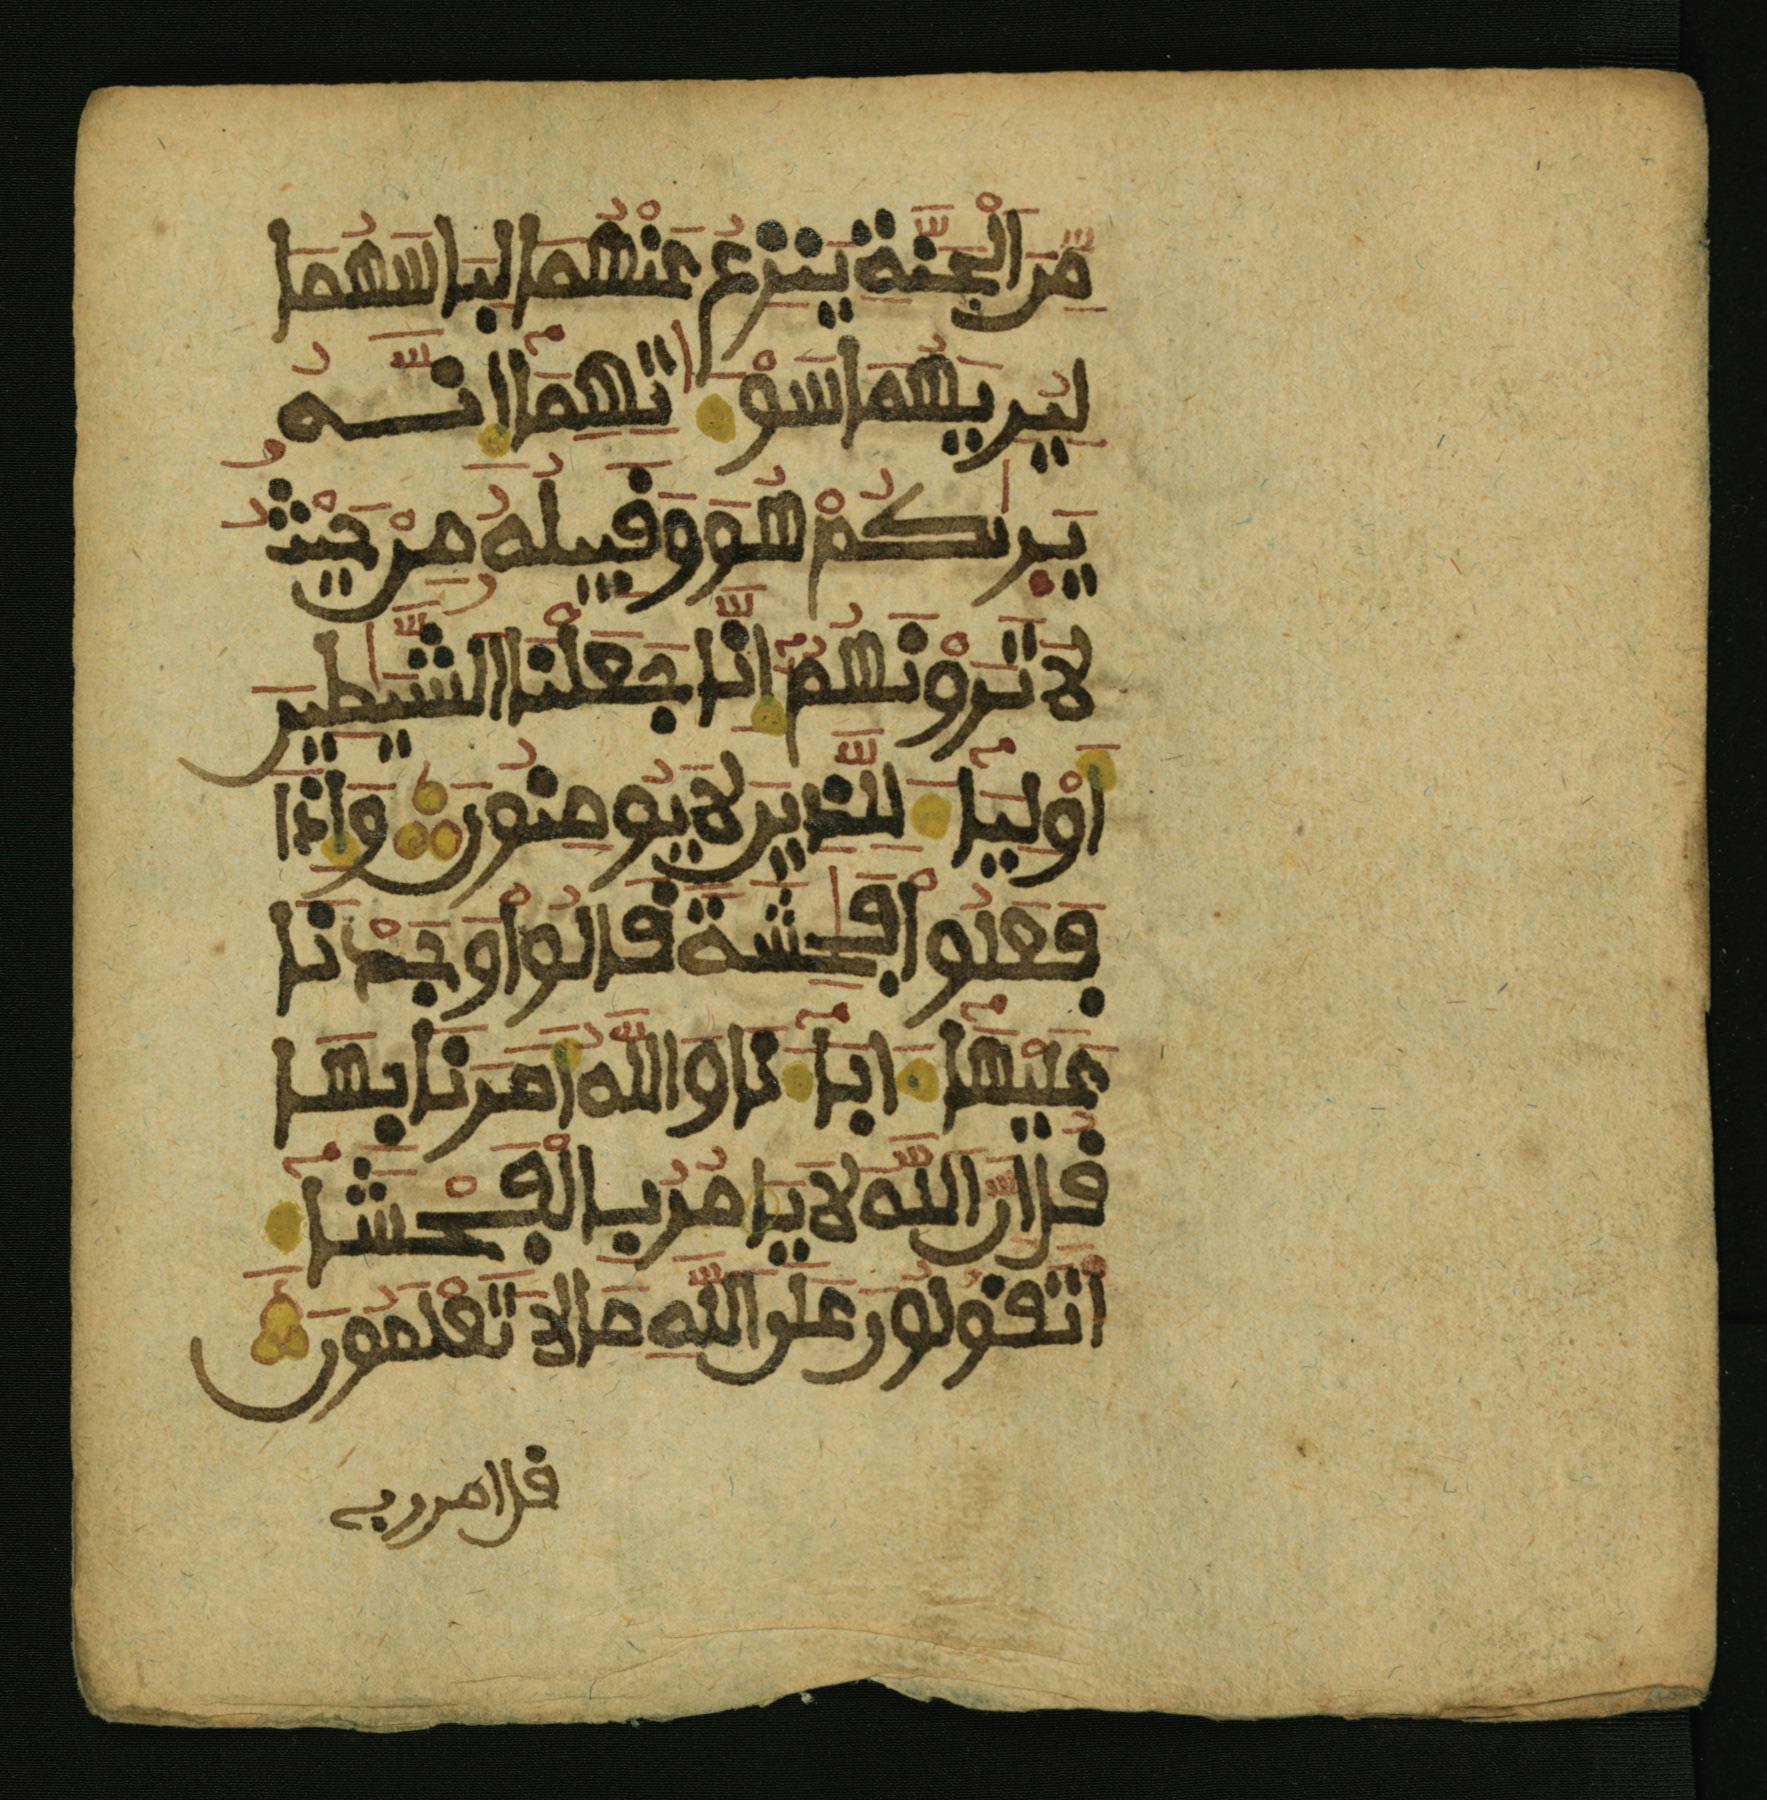 مِّنَ الْجَنَّةِ يَنزِعُ عَنْهُمَا لِبَاسَهُمَا
لِيُرِيَهُمَا سَوْءَٰتِهِمَا إِنَّهُ
يَرَىٰكُمْ هُوَ وَقَبِيلُهُ مِنْ حَيْثُ
لَا تَرَوْنَهُمْ إِنَّا جَعَلْنَا الشَّيَٰطِينَ
أَوْلِيَاءَ لِلَّذِينَ لَا يُومِنُونَ وَإِذَا
فَعَلُوا فَٰحِشَةً قَالُوا وَجَدْنَا
عَلَيْهَا ءَابَاءَنَا وَاللَّهُ أَمَرَنَا بِهَا
قُلْ إِنَّ اللَّهَ لَا يَامُرُ بِالْفَحْشَاءِ
أَتَقُولُونَ عَلَى اللَّهِ مَا لَا تَعْلَمُونَ
قل امر ربي